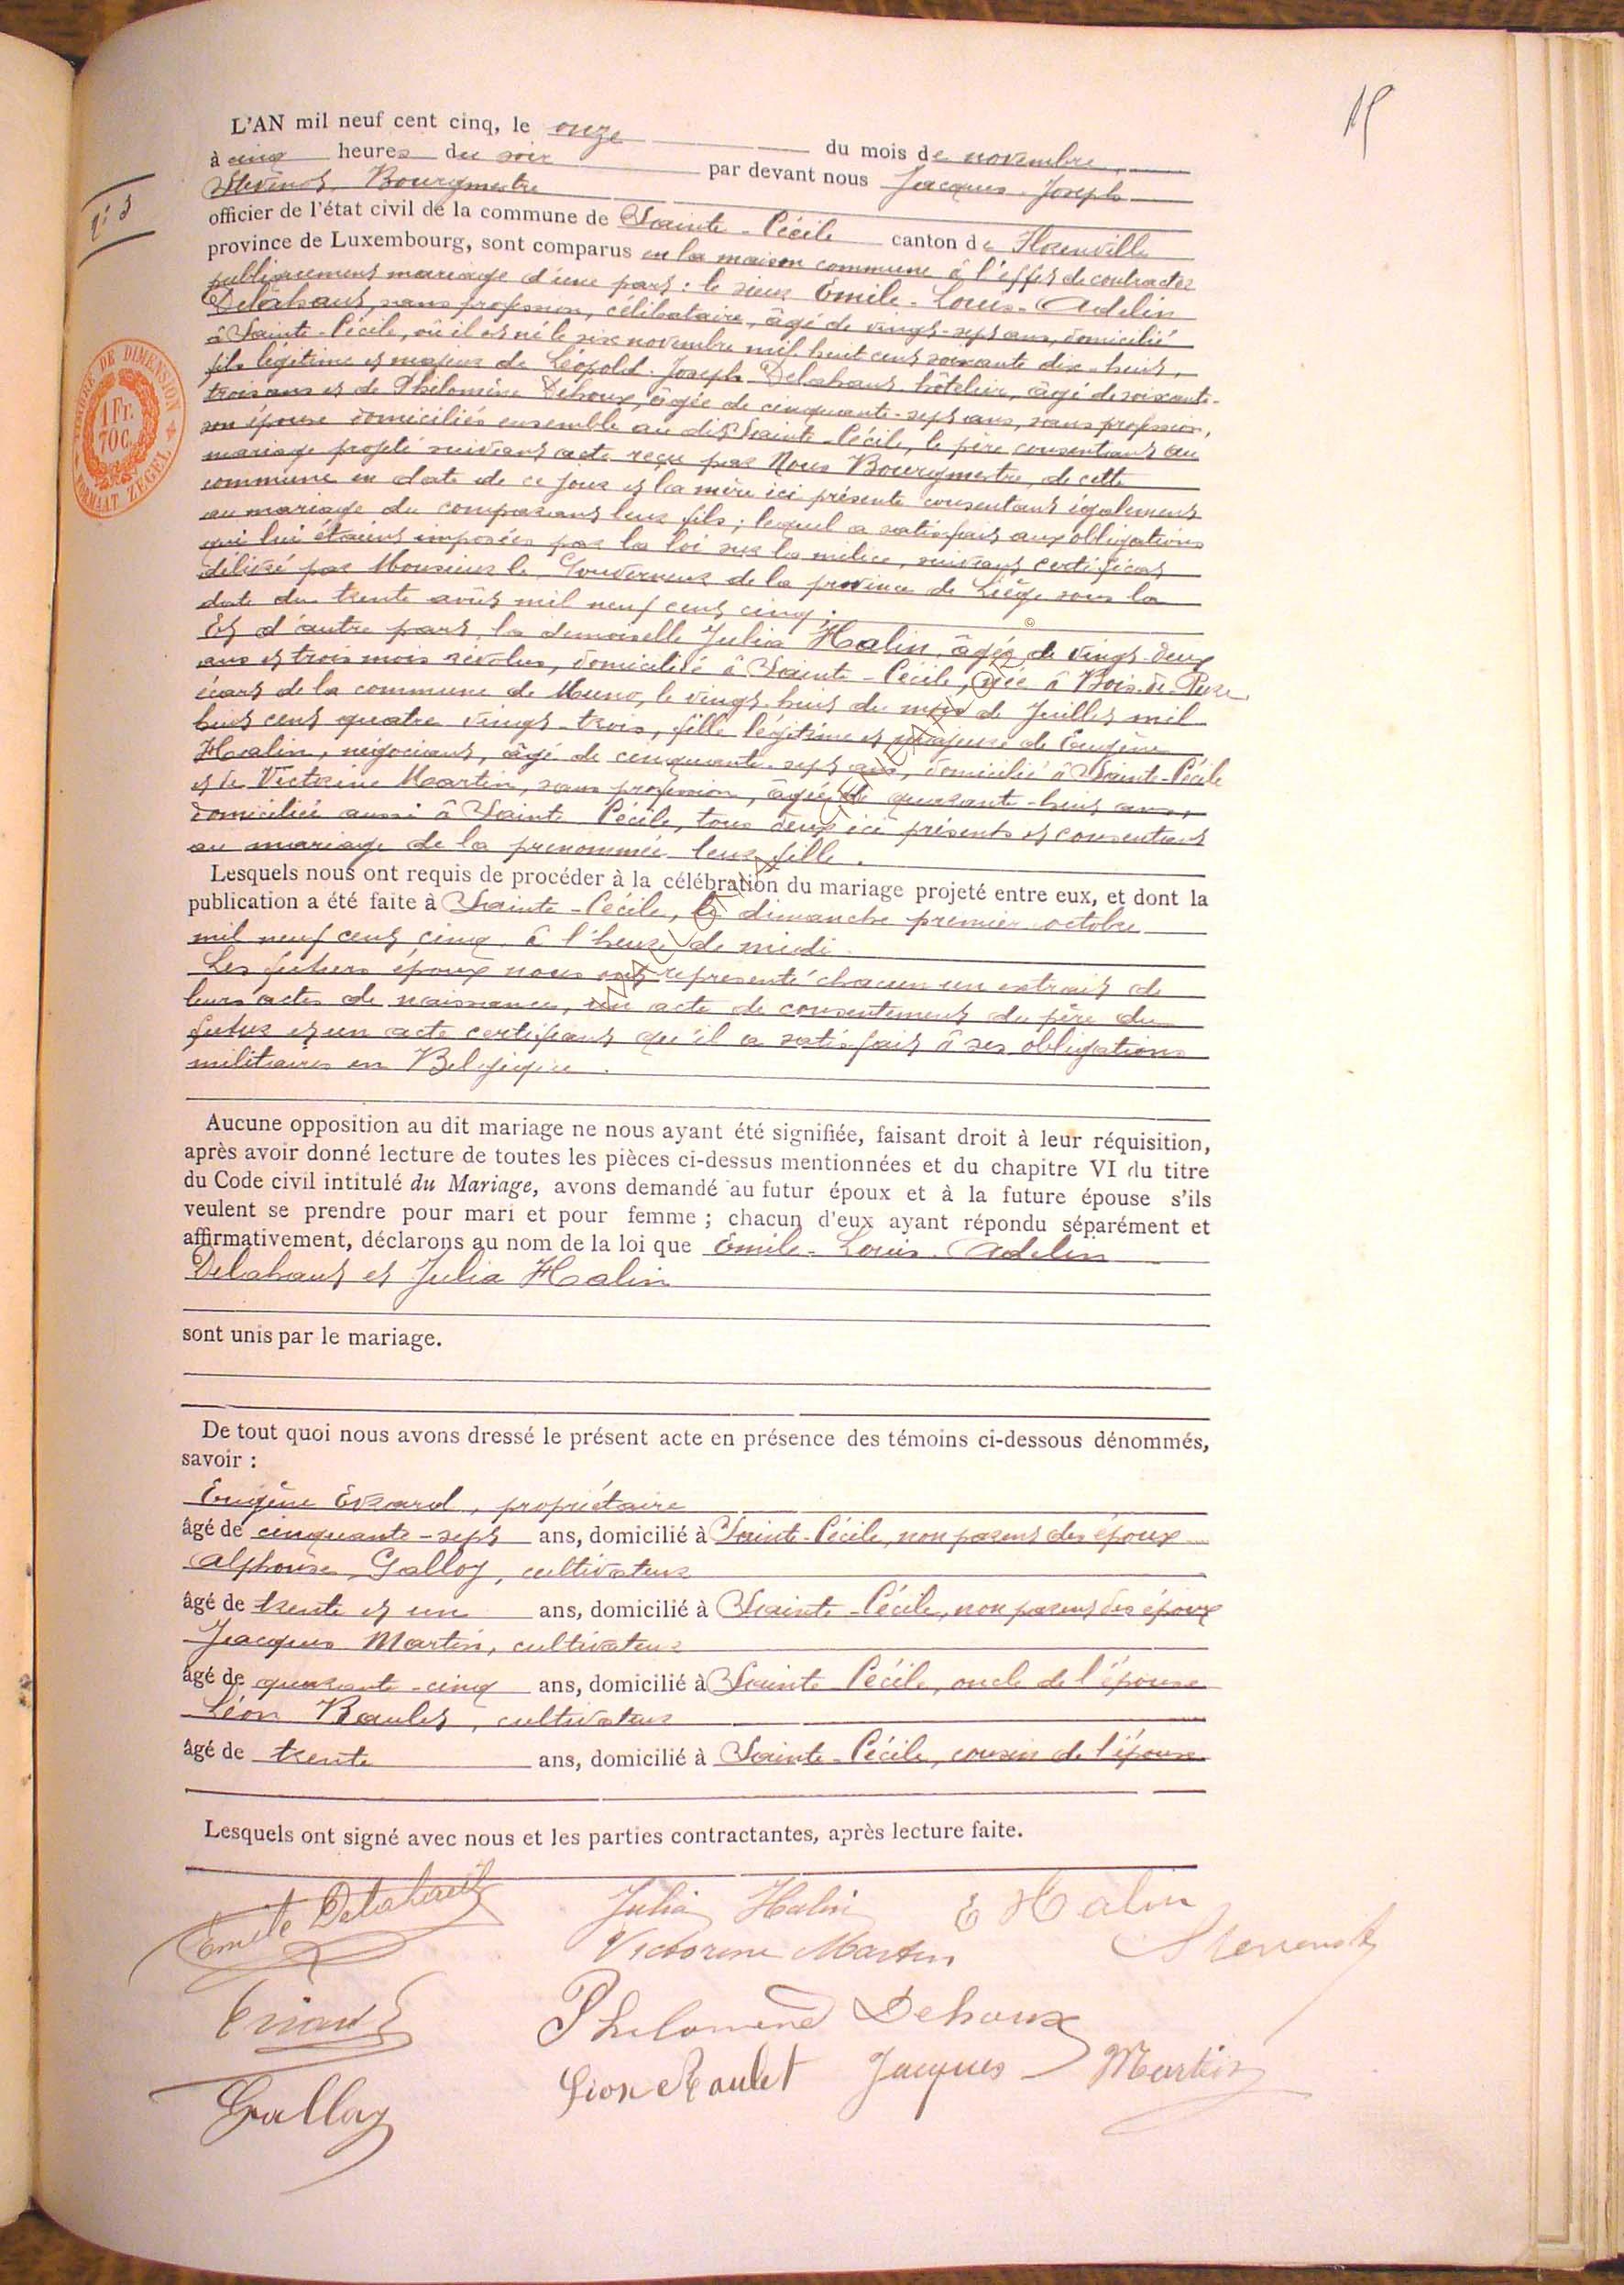 15
L'AN mil neuf cent cinq, le onze du mois de novembre
à cinq heures du soir par devant nous Jacques Joseph
Stevenot, Bourgmestre
officier de l'état civil de la commune de Sainte-Cécile canton de Florenville
province de Luxembourg, sont comparus en la maison commune à l'effet de contracter
publiquement mariage d'une part : le sieur Emile-Louis-Adelin
Delahaut, sans profession, célibataire, âgé de vingt-sept ans, domicilié
à Sainte-Cécile, où il est né le six novembre mil huit cent soixante dix-huit,
fils légitime et majeur de Léopold-Joseph Delahaut, hôtelier, âgé de soixante-
trois ans et de Philomène Dehoux, âgée de cinquante-sept ans, sans profession,
son épouse domiciliés ensemble au dit Sainte-Cécile, le père consentant au
mariage projeté suivant acte reçu par Nous Bourgmestre de cette
commune en date de ce jour et la mère ici présente consentant également
au mariage du comparant leur fils ; lequel a satisfait aux obligations
qui lui étaient imposées par la loi sur la milice, suivant certificat
délivré par Monsieur le Gouverneur de la province de Liége sous la
date du trente août mil neuf cent cinq.
Et d'autre part, la demoiselle Julia Halin, âgée de vingt-deux
ans et trois mois révolus, domiciliée à Sainte-Cécile, née à
écart de la commune de Muno, le vingt-huit du mois de Juillet mil
huit cent quatre vingt-trois, fille légitime et majeure de Eugène
Halin, négociant, âgé de cinquante-sept ans, domicilié à Sainte-Cécile
et de Victorine Martin, sans profession, âgée de quarante-huit ans,
domiciliée aussi à Sainte Cécile, tous deux ici présents et consentant
au mariage de la prénommée leur fille.
Lesquels nous ont requis de procéder à la célébration du mariage projeté entre eux, et dont la
publication a été faite à Sainte-Cécile, le dimanche premier octobre
mil neuf cent cinq à l'heure de midi.
Les futurs époux nous ont représenté chacun un extrait de
leurs actes de naissance, un acte de consentement du père du
futur et un acte certifiant qu'il a satisfait à ses obligations
militaires en Belgique.
Aucune opposition au dit mariage ne nous ayant été signifiée, faisant droit à leur réquisition,
après avoir donné lecture de toutes les pièces ci-dessus mentionnées et du chapitre VI du titre
du Code civil intitulé du Mariage, avons demandé au futur époux et à la future épouse s'ils
veulent se prendre pour mari et pour femme ; chacun d'eux ayant répondu séparément et
affirmativement, déclarons au nom de la loi que Emile-Louis-Adelin
Delahaut et Julia Halin
sont unis par le mariage.
De tout quoi nous avons dressé le présent acte en présence des témoins ci-dessous dénommés,
savoir :
Eugène Evrard, propriétaire
âgé de cinquante-sept ans, domicilié à Sainte-Cécile, non parent des époux
Alphonse Galloy, cultivateur
âgé de trente et un ans, domicilié à Sainte-Cécile, non parent des époux
Jacques Martin, cultivateur
âgé de quarante-cinq ans, domicilié à Sainte Cécile, oncle de l'épouse
Léon Baulet, cultivateur
âgé de trente ans, domicilié à Sainte-Cécile, cousin de l'épouse
Lesquels ont signé avec nous et les parties contractantes, après lecture faite.
Emile Delahaut Julia Halin E Halin
Victorine Martin Stevenot
Philomène Dehoux
Galloy Jacques Martin
TIMBRE DE DIMENSION
1 Fr.
70 C.
FORMAAT ZEGEL